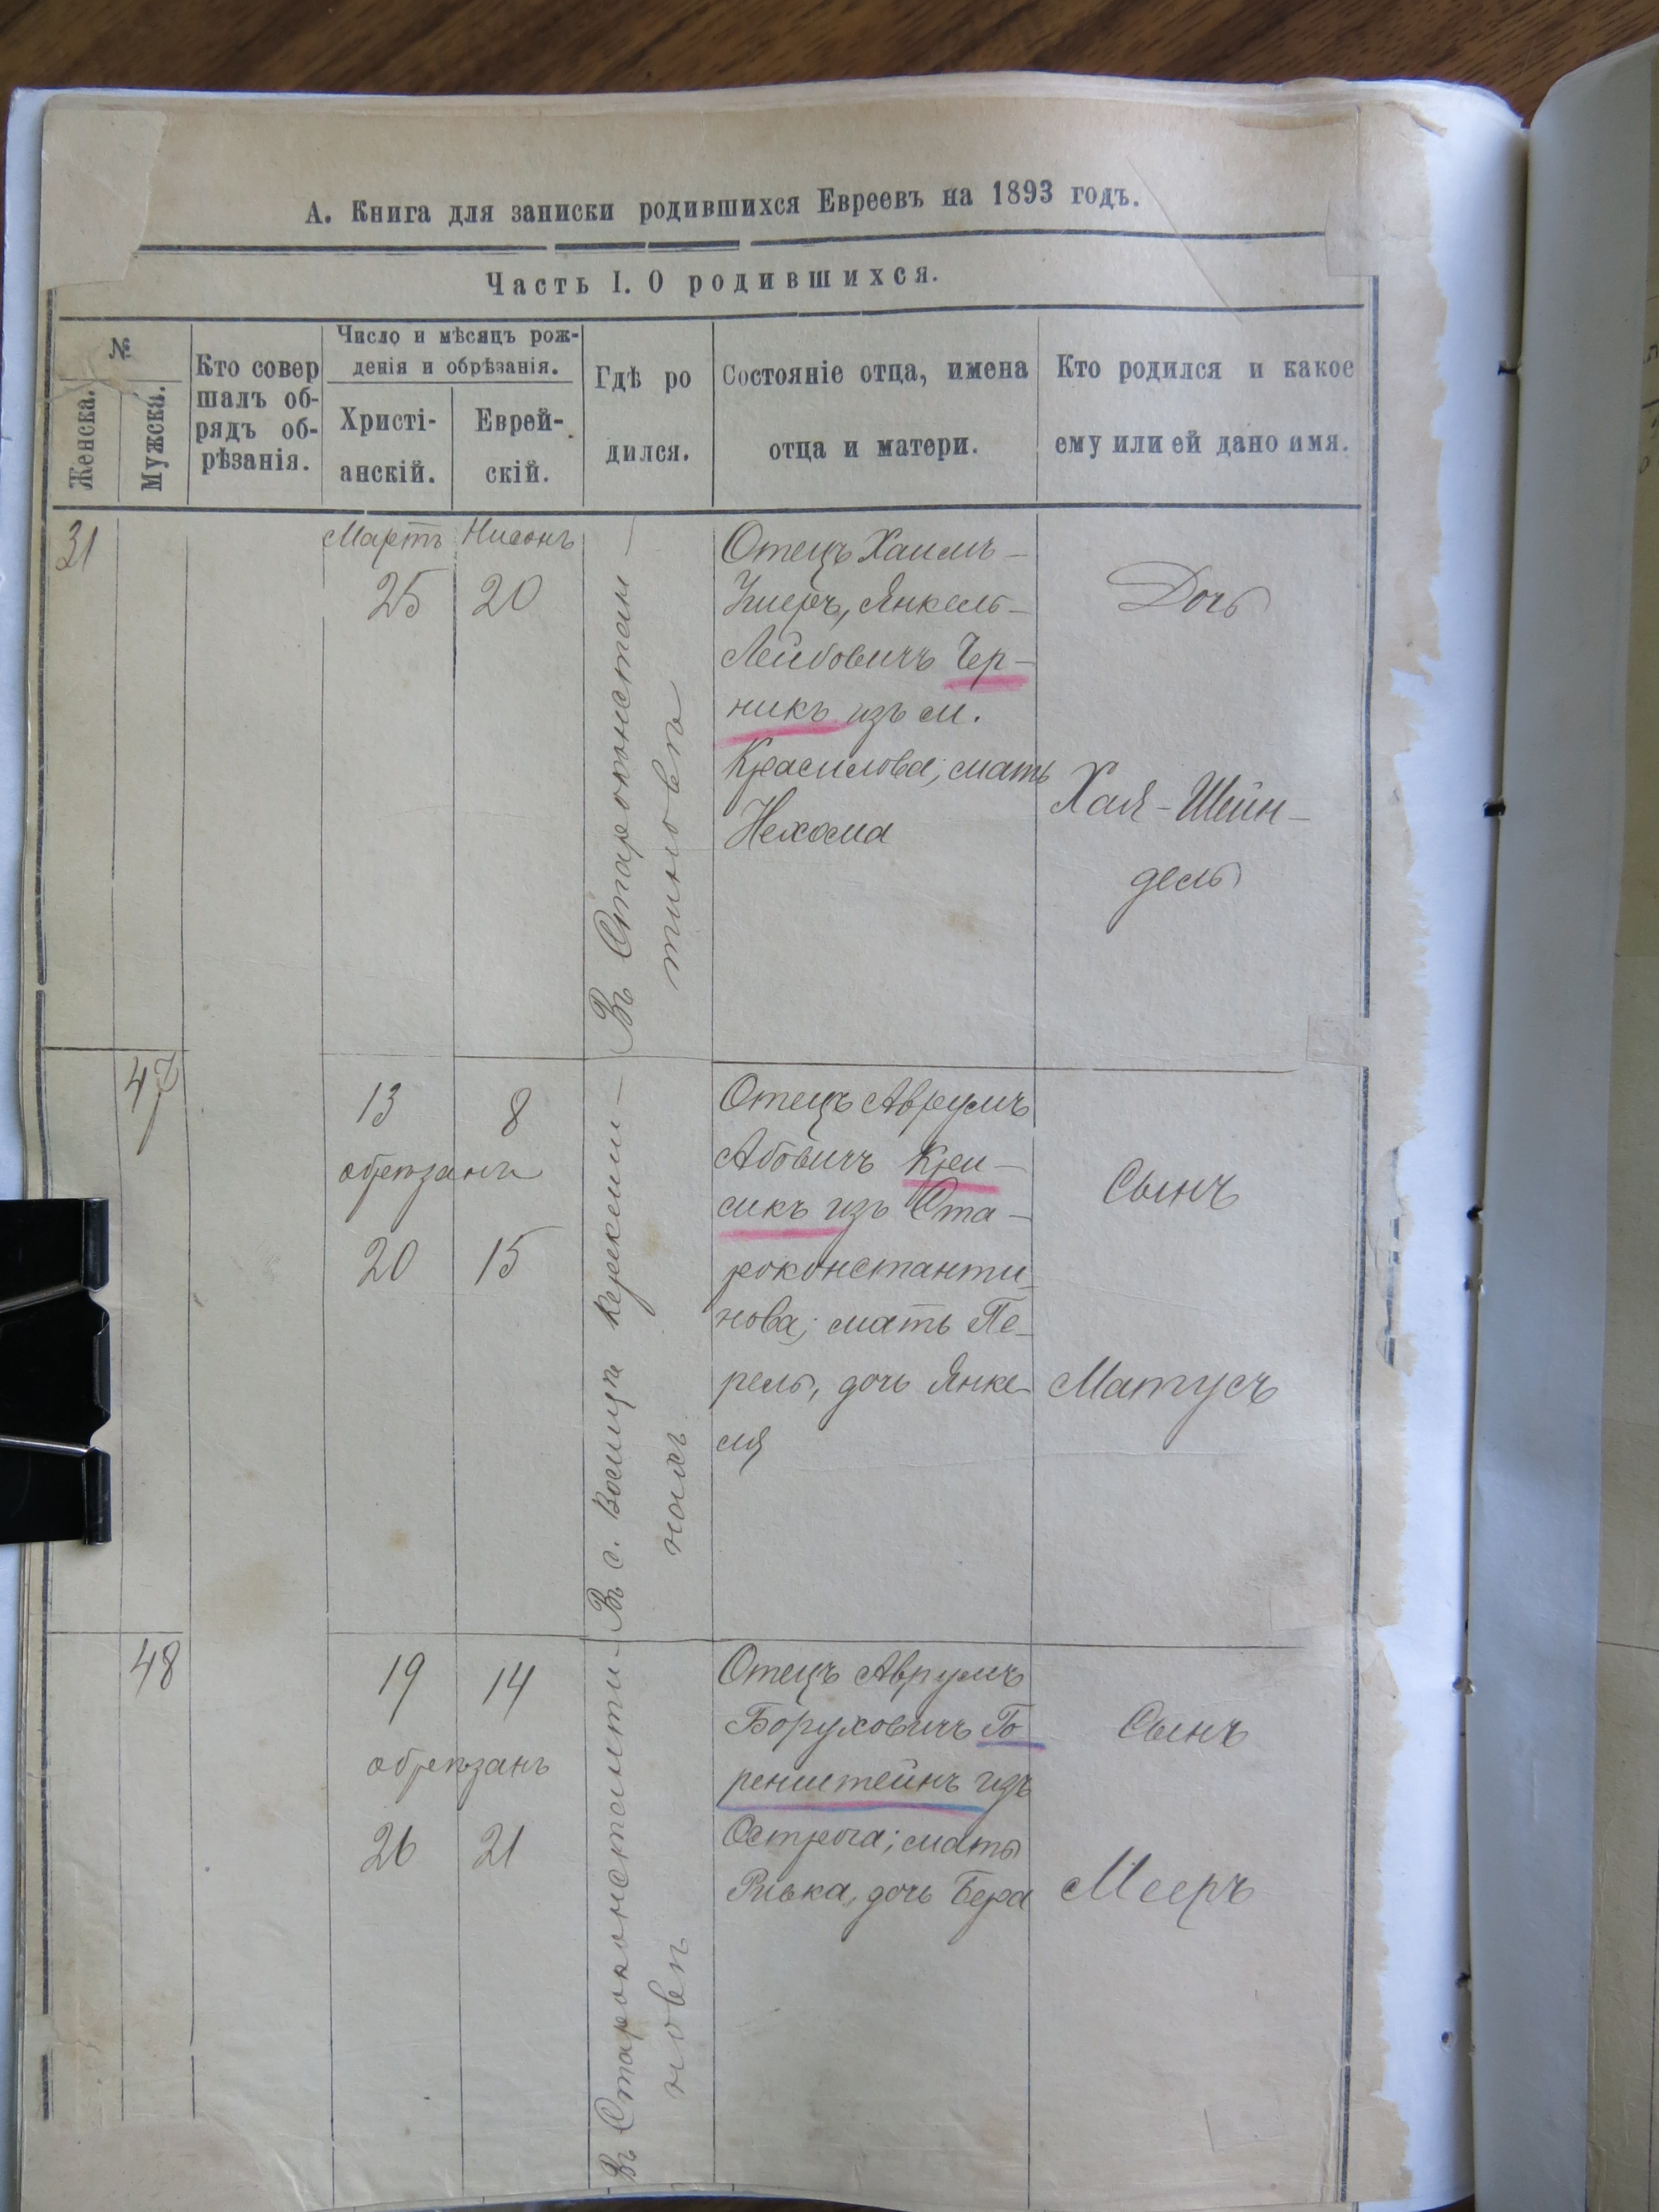 А. Книга для записки родившихся Евреевъ на 1893 годъ.
Часть I. О родившихся.
№
Женска.
Мужска.
Кто совер
шалъ об-
рядъ об-
рѣзанія.
Число и мѣсяцъ рож-
денія и обрѣзанія.
Христі-
анскій.
Еврей-
скій.
Гдѣ ро
дился.
Состояніе отца, имена
отца и матери.
Кто родился и какое
ему или ей дано имя.
31
Мартъ
25
Нисонъ
20
Въ Староконстан
тиновѣ
Отецъ Хаимъ-
Янкель-
Лейбовичъ Чер-
никъ изъ м.
Красилова; мать
Нехома
Дочь
Хая-Шейн-
дель
47
13
8
обрѣзанъ
20
15
Въ с.
нахъ
Отецъ Аврумъ
Абовичъ
изъ Ста-
роконстанти
нова; мать Пе-
рель, дочь Янке-
ля
Сынъ
Матусъ
48
19
14
обрѣзанъ
26
21
Въ Староконстанти-
новѣ
Отецъ Аврумъ
Боруховичъ Го
ренштейнъ изъ
Острога; мать
Ривка, дочь Бера
Сынъ
Мееръ